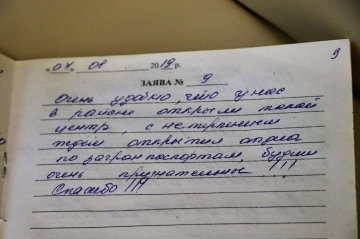 „07" 08 2019 г.
9
ЗАЯВА № 9
Очень удобно, что у нас
в районе открыли такой
центр, с нетерпением
ждем открытия отдела
по загран паспортам, будим
очень признательные !!!
Спасибо !!!